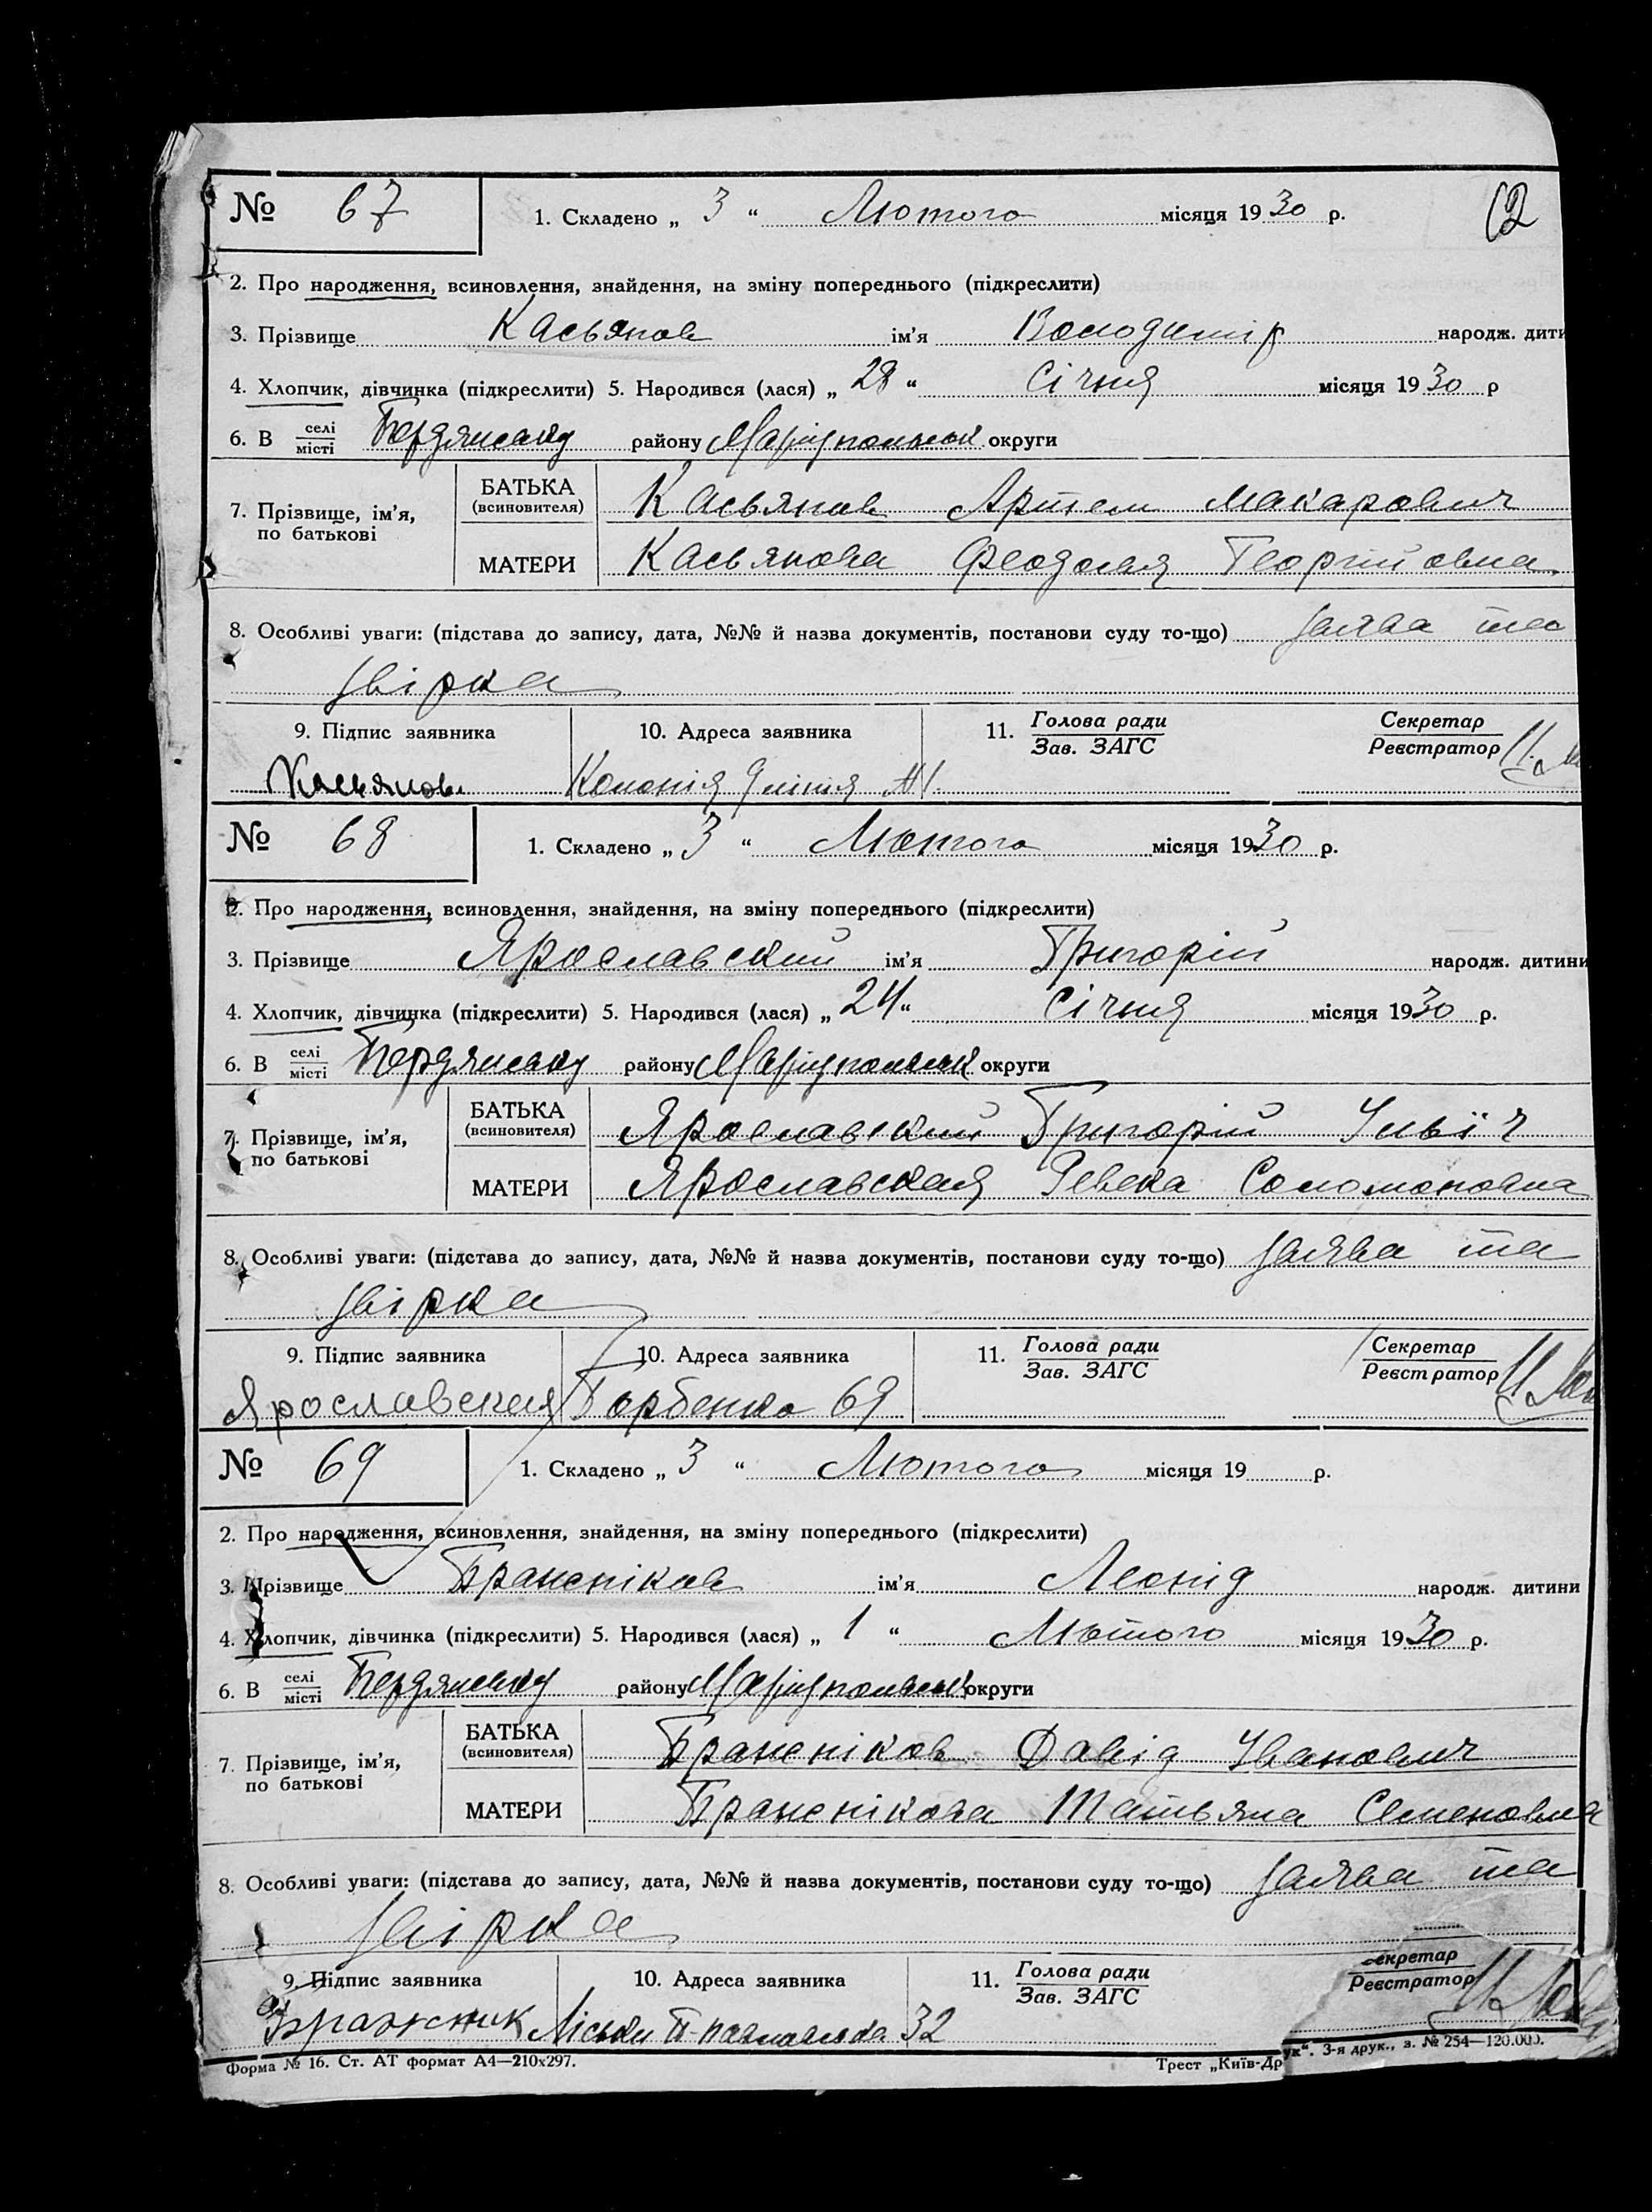 № 67
1. Складено „ 3 “ Лютого місяця 1930 р.
12
2. Про народження, всиновлення, знайдення, на зміну попереднього (підкреслити)
3. Прізвище Касьянов ім’я Володимір народж. дити
4. Хлопчик, дівчинка (підкреслити) 5. Народився (лася) „ 28 “ Січня місяця 1930 р
6. В селі місті Бердянську району Маріупольськ округи
7. Прізвище, ім’я, по батькові
БАТЬКА (всиновителя) Касьянов Артем Макарович
МАТЕРИ Касьянова Феодосія Георгійовна
8. Особливі уваги: (підстава до запису, дата, №№ й назва документів, постанови суду то-що) заява та
звірка
9. Підпис заявника 10. Адреса заявника 11. Голова ради Зав. ЗАГС Секретар Реєстратор
Касьянов Колонія 9 лінія №1
№ 68
1. Складено „ 3 “ Лютого місяця 1930 р.
2. Про народження, всиновлення, знайдення, на зміну попереднього (підкреслити)
3. Прізвище Ярославский ім’я Григорій народж. дитини
4. Хлопчик, дівчинка (підкреслити) 5. Народився (лася) „ 24 “ Січня місяця 1930 р.
6. В селі місті Бердянську району Маріупольськ округи
7. Прізвище, ім’я, по батькові
БАТЬКА (всиновителя) Ярославский Григорій Ільїч
МАТЕРИ Ярославская Ревека Соломоновна
8. Особливі уваги: (підстава до запису, дата, №№ й назва документів, постанови суду то-що) заява та
звірка
9. Підпис заявника 10. Адреса заявника 11. Голова ради Зав. ЗАГС Секретар Реєстратор
Ярославская Горбенко 69
№ 69
1. Складено „ 3 “ Лютого місяця 19 р.
2. Про народження, всиновлення, знайдення, на зміну попереднього (підкреслити)
3. Прізвище Бражніков ім’я Леонід народж. дитини
4. Хлопчик, дівчинка (підкреслити) 5. Народився (лася) „ 1 “ Лютого місяця 1930 р.
6. В селі місті Бердянську району Маріупольськ округи
7. Прізвище, ім’я, по батькові
БАТЬКА (всиновителя) Бражніков Давід Іванович
МАТЕРИ Бражнікова Татьяна Семеновна
8. Особливі уваги: (підстава до запису, дата, №№ й назва документів, постанови суду то-що) заява та
звірка
9. Підпис заявника 10. Адреса заявника 11. Голова ради Зав. ЗАГС Секретар Реєстратор
Бражник Ліски 32
Форма № 16. Ст. АТ формат А4—210х297. Трест „Київ-Друк“. 3-я друк., з. № 254—120.000.